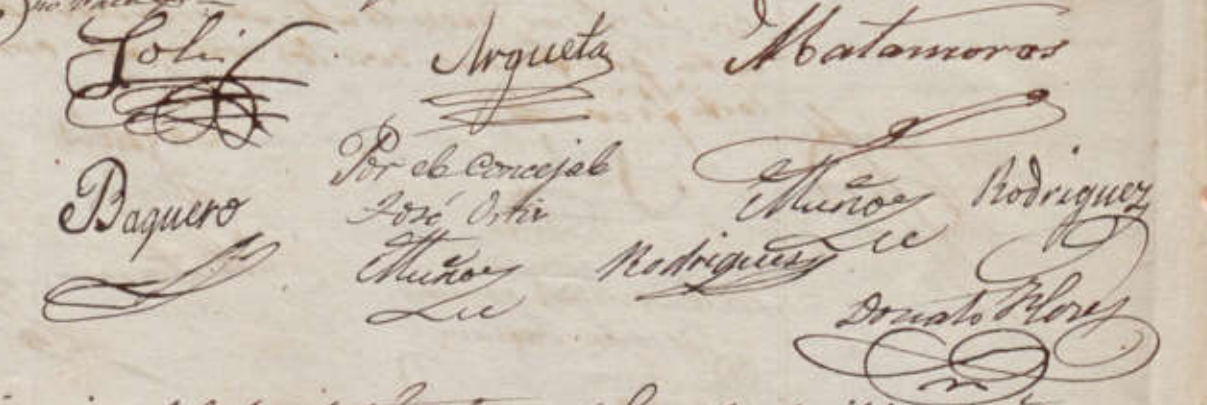 Solis Argueta Matamoros
Baquero
Por el concejal
José Ortiz
Muñoz
Rodriguez
Muñoz
Rodriguez
Donato Flores